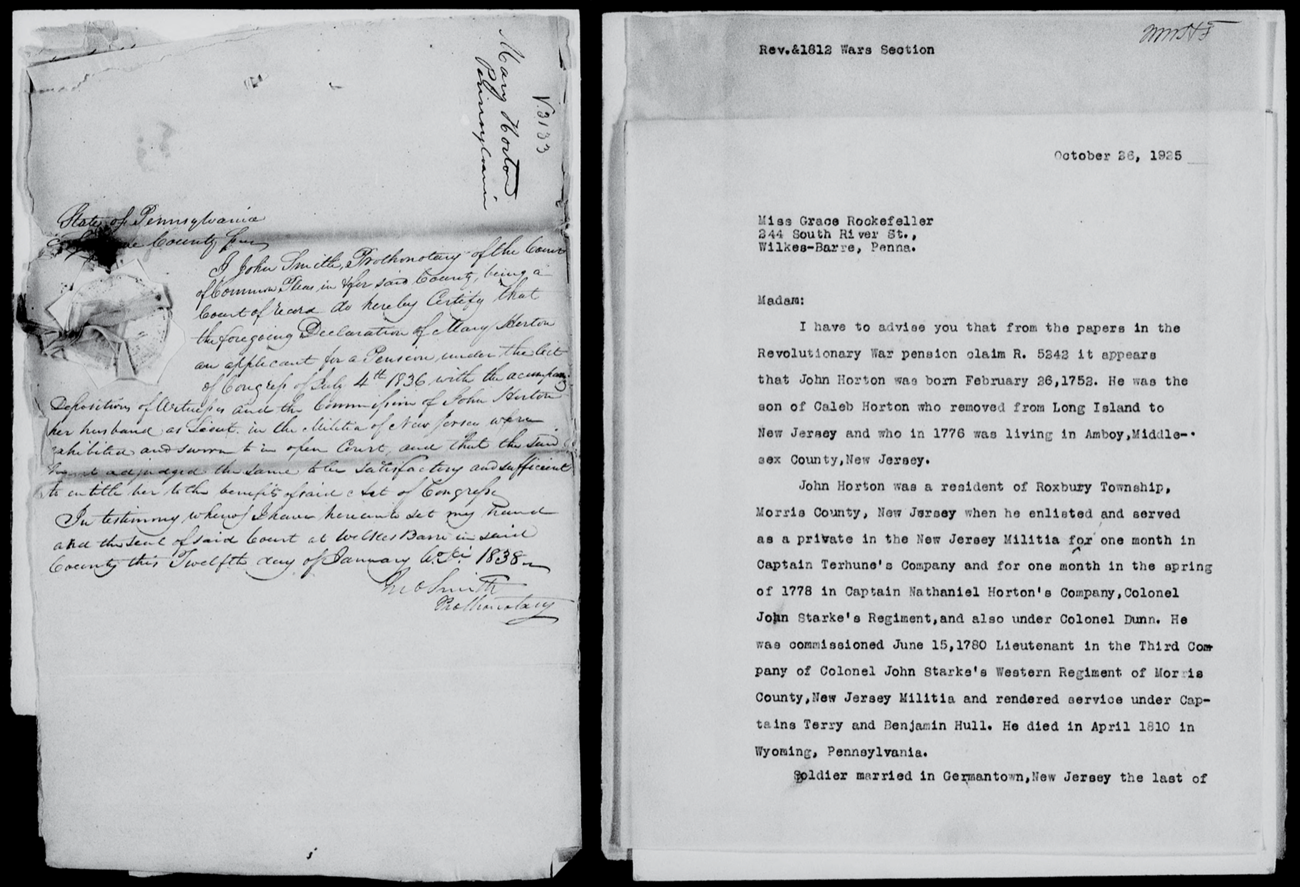 Mary Horton
Pennsylvania
V.3133
State of Pennsylvania
County ss
I John Smith, Prothonotary of the Court
of Common Pleas, in & for said County, being a
Court of record do hereby Certify that
the foregoing Declaration of Mary Horton
an applicant for a Pension under the Act
of Congress of July 4th 1836 with the
Depositions of Witnesses and the Commission of John Horton
her husband as Lieut. in the Militia of New Jersey were
exhibited and sworn to in open Court, and that the said
adjudged the same to be satisfactory and sufficient
to entitle her to the benefit of said Act of Congress
In testimony whereof I have hereunto set my hand
and the seal of said Court at Wilkes Barre in said
County this Twelfth day of January A.D. 1838
Jno Smith
Prothonotary
Rev.&1812 Wars Section
October 26, 1925
Miss Grace Rockefeller
244 South River St.,
Wilkes-Barre, Penna.
Madam:
I have to advise you that from the papers in the
Revolutionary War pension claim R. 5242 it appears
that John Horton was born February 26,1752. He was the
son of Caleb Horton who removed from Long Island to
New Jersey and who in 1776 was living in Amboy,Middle-
sex County,New Jersey.
John Horton was a resident of Roxbury Township,
Morris County, New Jersey when he enlisted and served
as a private in the New Jersey Militia for one month in
Captain Terhune's Company and for one month in the spring
of 1778 in Captain Nathaniel Horton's Company,Colonel
John Starke's Regiment,and also under Colonel Dunn. He
was commissioned June 15,1780 Lieutenant in the Third Com
pany of Colonel John Starke's Western Regiment of Morris
County,New Jersey Militia and rendered service under Cap-
tains Terry and Benjamin Hull. He died in April 1810 in
Wyoming, Pennsylvania.
Soldier married in Germantown,New Jersey the last of